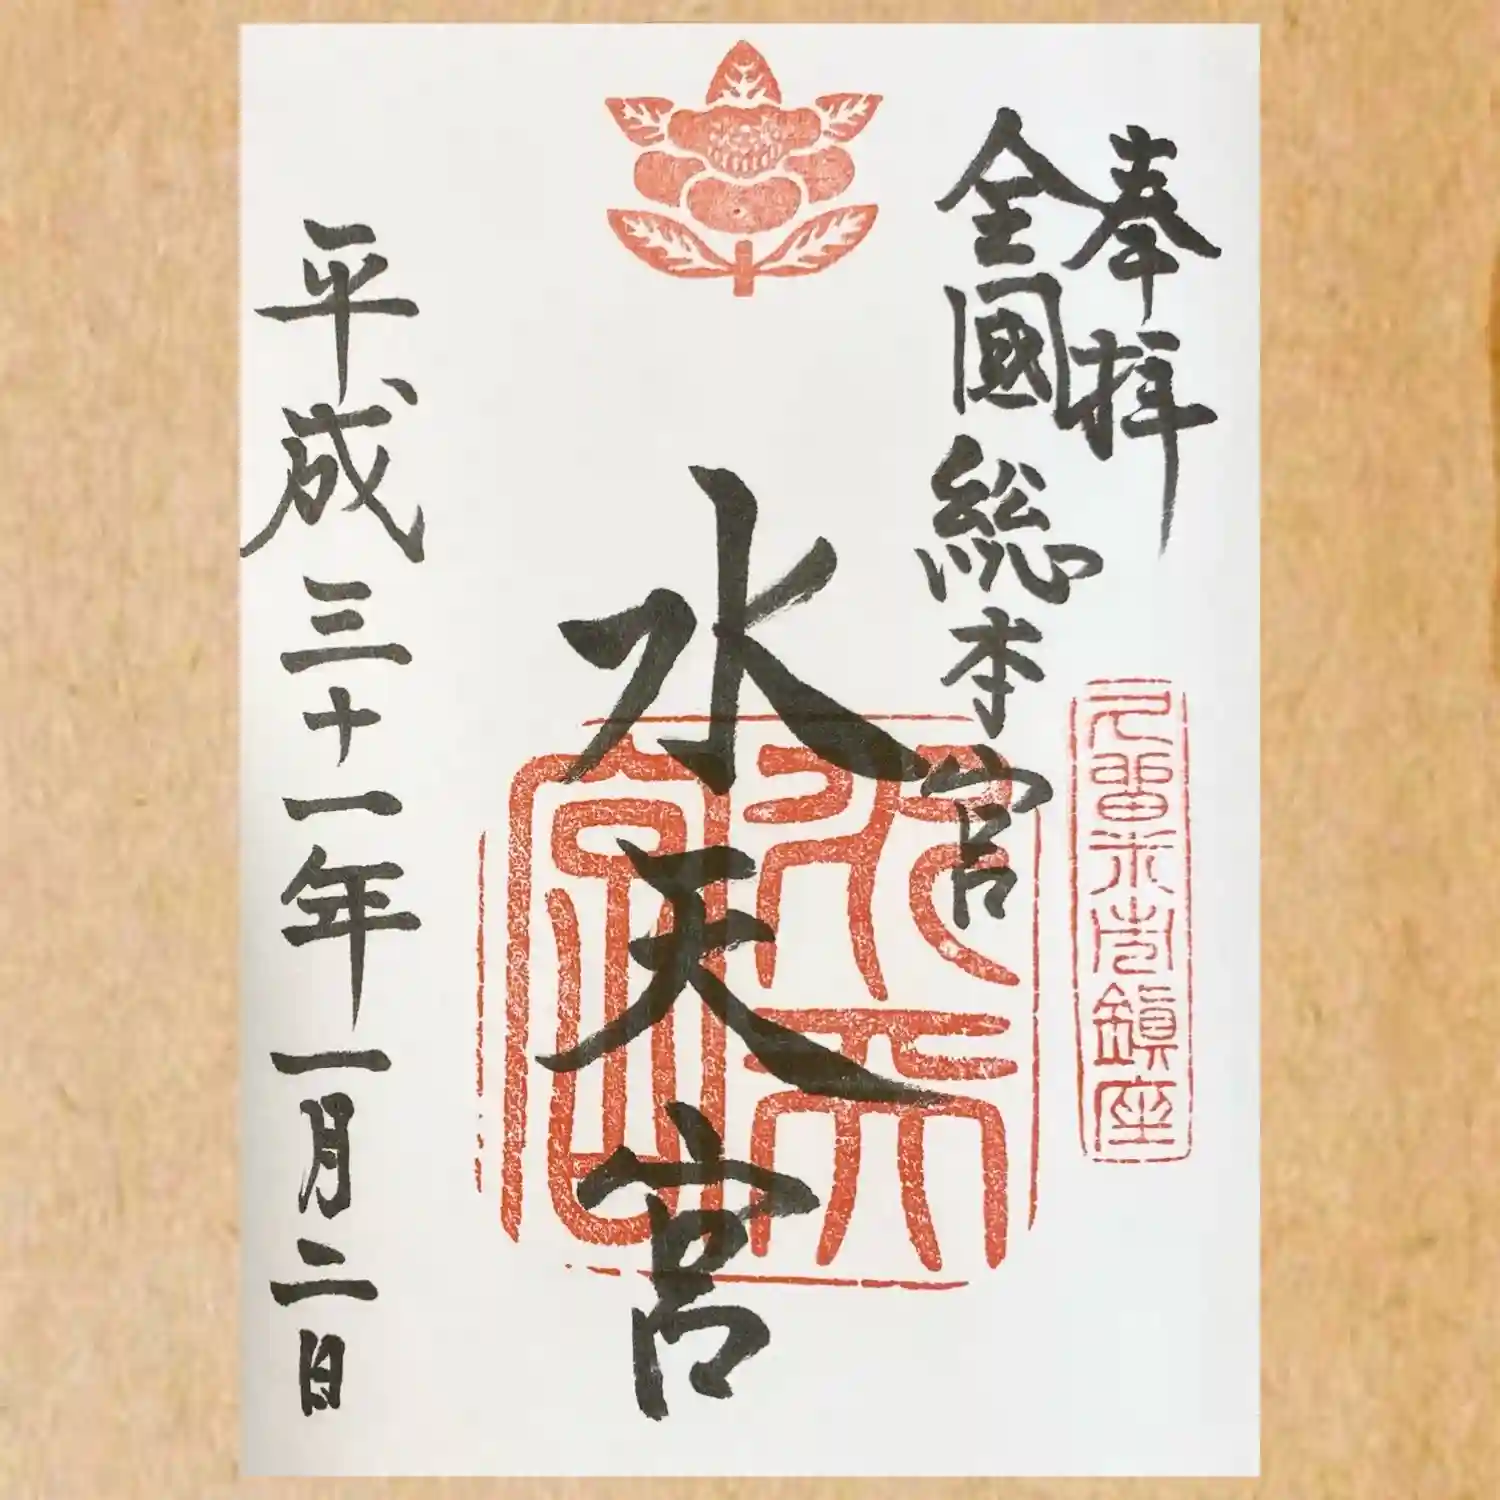 奉拝
全國総本宮
水天宮
久留米市鎮座
平成三十一年一月二日